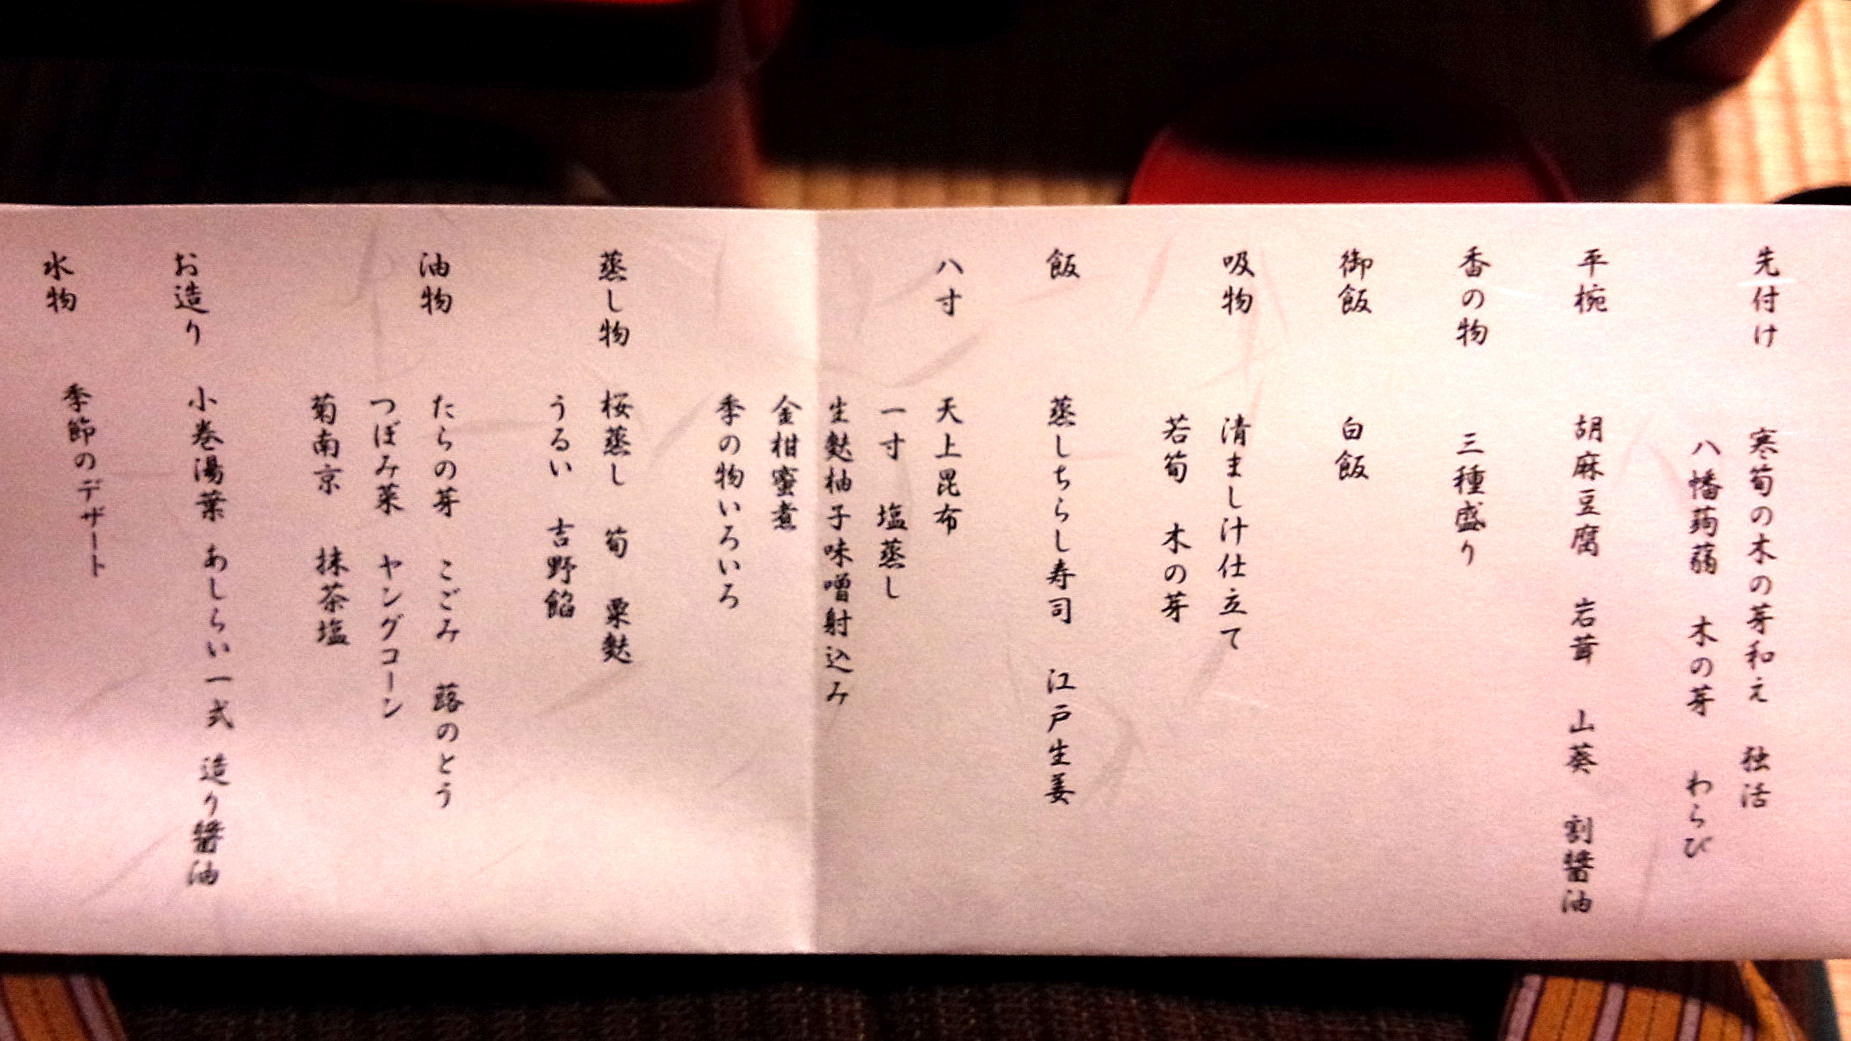 先付け 寒筍の木の芽和え 独活
八幡蒟蒻 木の芽 わらび
平椀 胡麻豆腐 岩茸 山葵 割醤油
香の物 三種盛り
御飯 白飯
吸物 清まし汁仕立て
若筍 木の芽
飯 蒸しちらし寿司 江戸生姜
八寸 天上昆布
一寸 塩蒸し
生麩柚子味噌射込み
金柑蜜煮
季の物いろいろ
蒸し物 桜蒸し 筍 粟麩
うるい 吉野餡
油物 たらの芽 こごみ 蕗のとう
つぼみ菜 ヤングコーン
菊南京 抹茶塩
お造り 小巻湯葉 あしらい一式 造り醤油
水物 季節のデザート